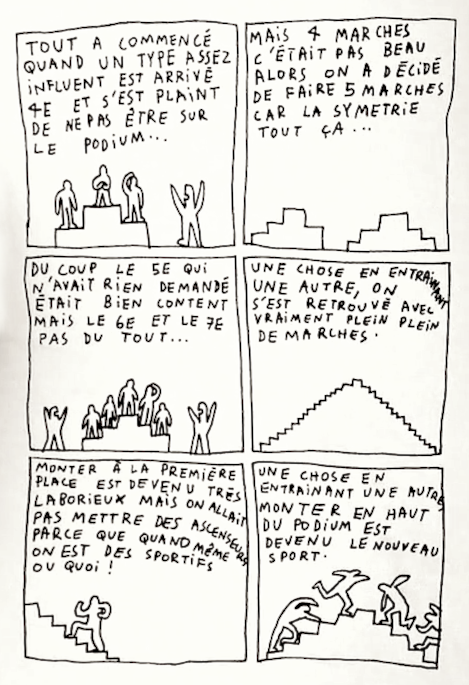 TOUT A COMMENCÉ
QUAND UN TYPE ASSEZ
INFLUENT EST ARRIVÉ
4E ET S'EST PLAINT
DE NE PAS ÊTRE SUR
LE PODIUM...
MAIS 4 MARCHES
C'ÉTAIT PAS BEAU
ALORS ON A DÉCIDÉ
DE FAIRE 5 MARCHES
CAR LA SYMETRIE
TOUT ÇA...
DU COUP LE 5E QUI
N'AVAIT RIEN DEMANDÉ
ÉTAIT BIEN CONTENT
MAIS LE 6E ET LE 7E
PAS DU TOUT...
UNE CHOSE EN ENTRAÎNANT
UNE AUTRE, ON
S'EST RETROUVÉ AVEC
VRAIMENT PLEIN PLEIN
DE MARCHES.
MONTER À LA PREMIÈRE
PLACE EST DEVENU TRÈS
LABORIEUX MAIS ON ALLAIT
PAS METTRE DES ASCENSEURS
PARCE QUE QUAND MÊME
ON EST DES SPORTIFS
OU QUOI!
UNE CHOSE EN
ENTRAÎNANT UNE AUTRE,
MONTER EN HAUT
DU PODIUM EST
DEVENU LE NOUVEAU
SPORT.